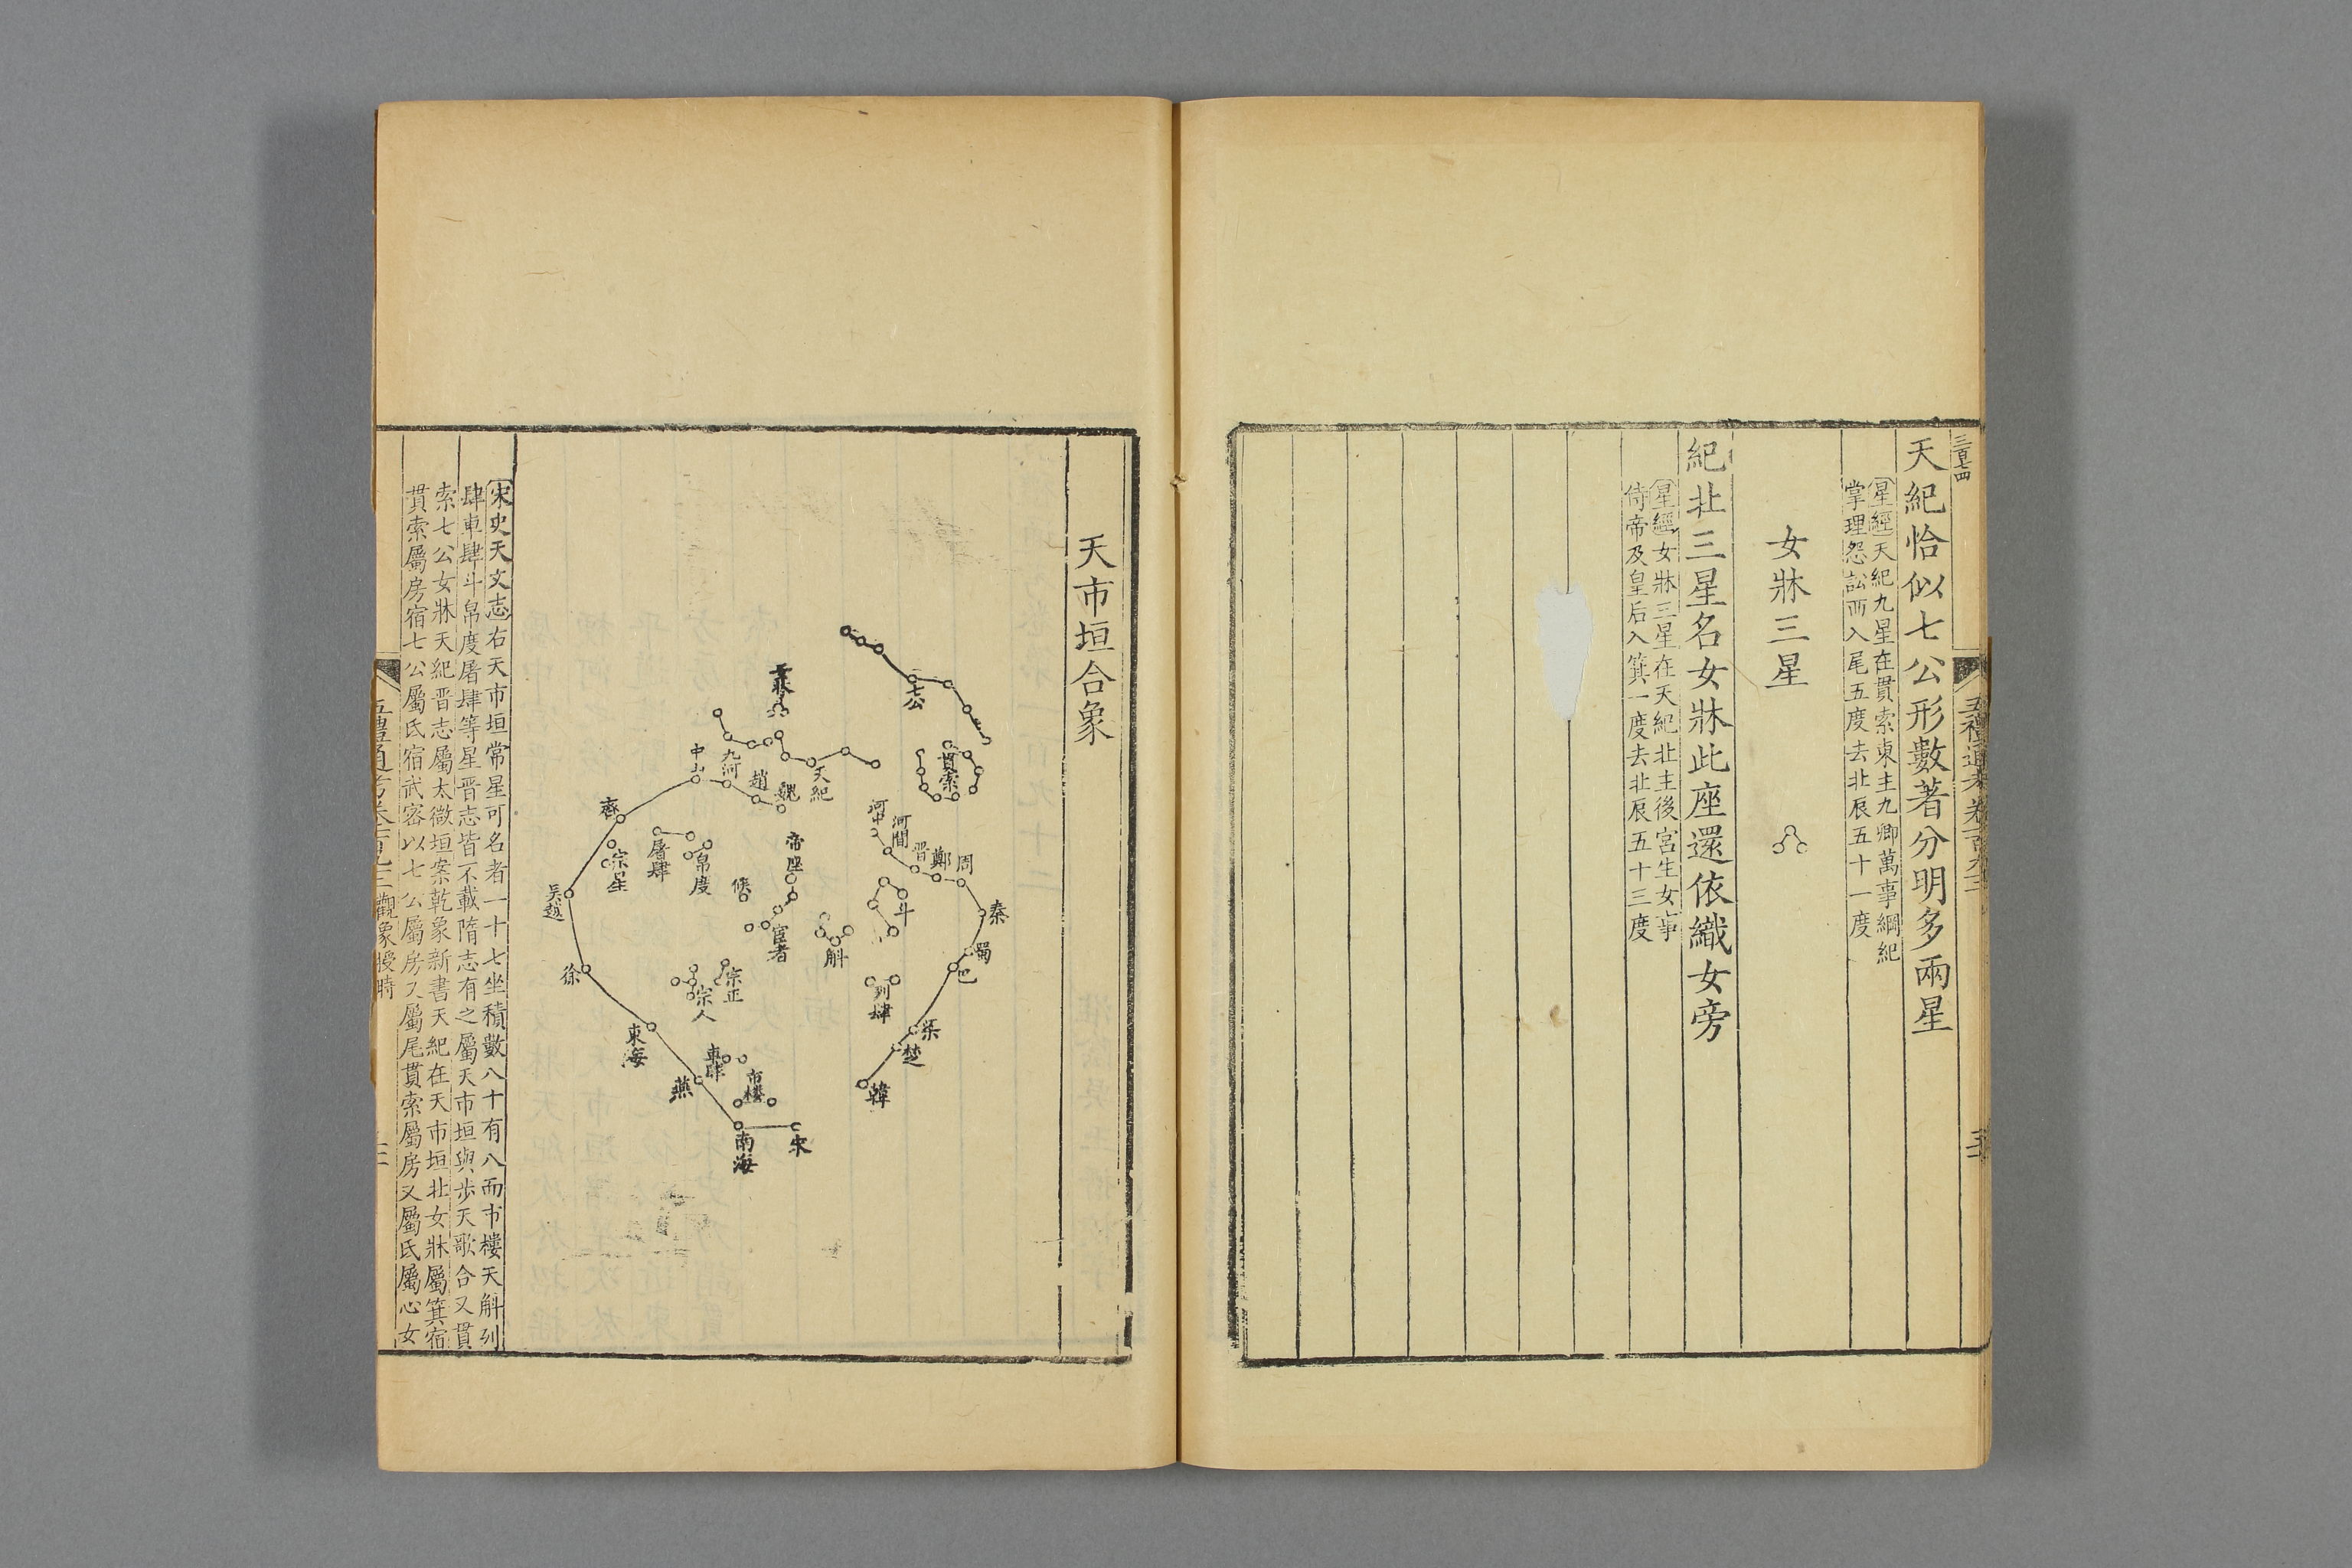 三百七四
天紀恰似七公形數著分明多兩星
星經天紀九星在貫索東主九卿萬事綱紀
掌理怨訟西入尾五度去北辰五十一度
女牀三星
紀北三星名女牀此座還依織女旁
星經女牀三星在天紀北主後宮生女事
侍帝及皇后入箕一度去北辰五十三度
天市垣合象
七公
貫索
女牀
天紀
魏
趙
九河
中山
齊
吳越
徐
東海
燕
南海
宋
河中
河間
晋
鄭
周
秦
蜀
巴
梁
楚
韓
帝座
候
宦者
斗
斛
列肆
屠肆
帛度
宗星
宗正
宗人
車肆
市樓
宋史天文志右天市垣常星可名者一十七坐積數八十有八而市樓天斛列
肆車肆斗帛度屠肆等星晋志皆不載隋志有之屬天市垣與步天歌合又貫
索七公女牀天紀晋志屬太微垣案乾象新書天紀在天市垣北女牀屬箕宿
貫索屬房宿七公屬氐宿武密以七公屬房又屬尾貫索屬房又屬氐屬心女
五禮通考卷一百九十三觀象授時